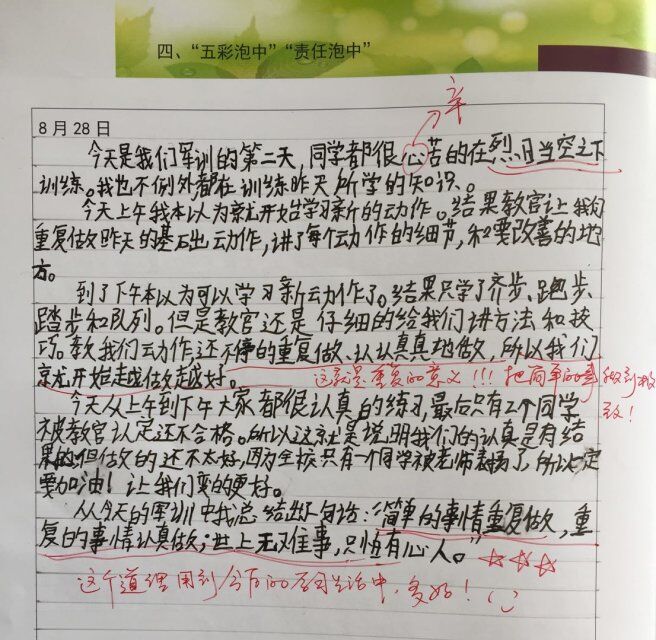 四、“五彩泡中”“责任泡中”
辛
8月28日
今天是我们军训的第二天,同学都很心苦的在烈日当空之下
训练。我也不例外都在训练昨天所学的知识。
今天上午我本以为就开始学习新的动作。结果教官让我们
重复做昨天的基础动作,讲了每个动作的细节,和要改善的地
方。
到了下午本以为可以学习新动作了。结果只学了齐步、跑步、
踏步和队列。但是教官还是仔细的给我们讲方法和技
巧。教我们动作还不停的重复做、认认真真地做,所以我们
就开始越做越好。
这就是重复的意义!!!把简单的事做到极
致!
今天从上午到下午大家都很认真的练习,最后只有2个同学
被教官认定还不合格。所以这就是说明我们的认真是有结
果的,但做的还不太好,因为全校只有一个同学被老师表扬了,所以一定
要加油!让我们变的更好。
从今天的军训中我总结出一句话:“简单的事情重复做,重
复的事情认真做;世上无难事,只怕有心人。”
这个道理用到今后的学习生活中,多好!